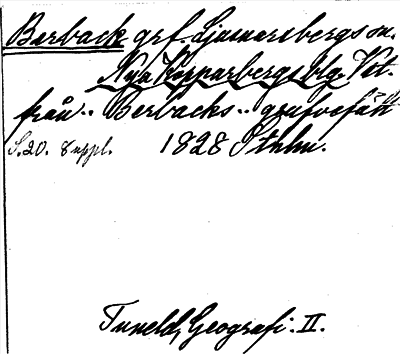 Berback grf. Ljusnarsbergs sn.
Nya Kopparbergs blg. Vtl.
från "Berbacks" grufvefält
S. 20. Suppl. 1828 Sthlm.
Tuneld, Geografi. II.